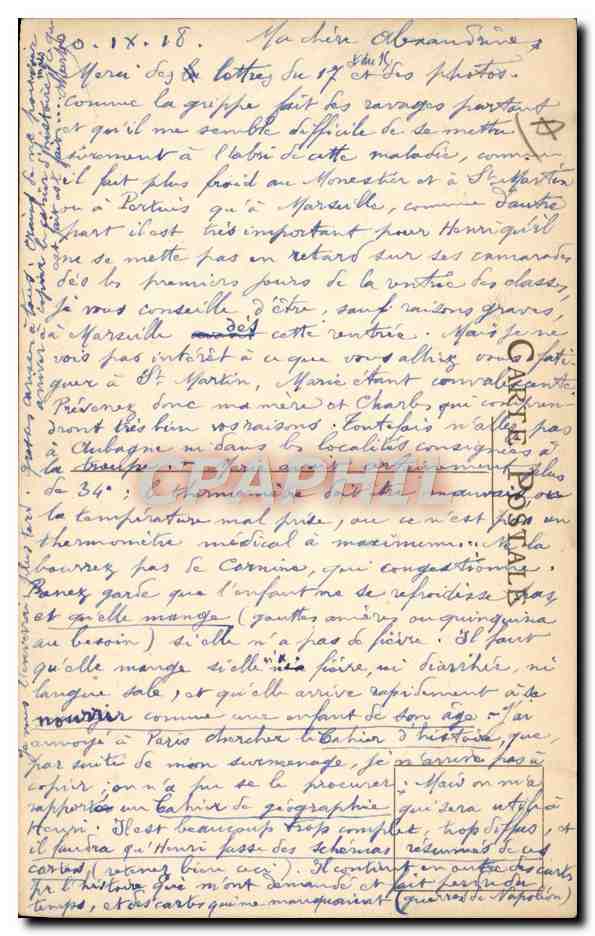 0. IX. 18. Ma chère Alexandrine,
Merci des lettres du 17 et des photos.
comme la grippe fait des ravages partout
et qu'il me semble difficile de se mettre
sûrement à l'abri de cette maladie, comme
il fait plus froid au Monestier et à St Martin
ou à Pertuis qu'à Marseille, comme d'autre
part il est très important pour Henri qu'il
ne se mette pas en retard sur ses camarades
dès les premiers jours de la rentrée des classes,
je vous conseille d'être, sauf raisons graves,
à Marseille dès cette rentrée. Mais je ne
vois pas intérêt à ce que vous alliez vous fati
guer à St. Martin, Marie étant convalescente.
Prévenez donc ma mère et Charles qui compren
dront très bien vos raisons. Toutefois n'allez pas
à Aubagne ni dans les localités consignées à
la troupe. plus
de 34° ; le thermomètre doit être mauvais ou
la température mal prise, ou ce n'est pas un
thermomètre médical à maximum... Ne la
bourrez pas de Cornine, qui congestionne.
Prenez garde que l'enfant ne se refroidisse pas
et qu'elle mange (gouttes amères ou quinquina
au besoin) si elle n'a pas de fièvre. Il faut
qu'elle mange si elle n'a ni fièvre, ni diarrhée, ni
langue sale, et qu'elle arrive rapidement à se
nourrir comme une enfant de son âge. - J'ai
envoyé à Paris chercher le Cahier d'histoire, que,
par suite de mon surmenage, je n'arrive pas à
copier ; on n'a pu se le procurer. Mais on m'a
rapporté un Cahier de géographie qui sera utile à
Henri. Il est beaucoup trop complet, trop diffus, et
il faudra qu'Henri fasse des schémas résumés de ces
cartes (retenez bien ceci). Il contient en outre des cartes
pr l'histoire que m'ont demandé et fait perdre du
temps, et des cartes qui me manquaient (guerres de Napoléon)
CARTE POSTALE
CPAPHIL